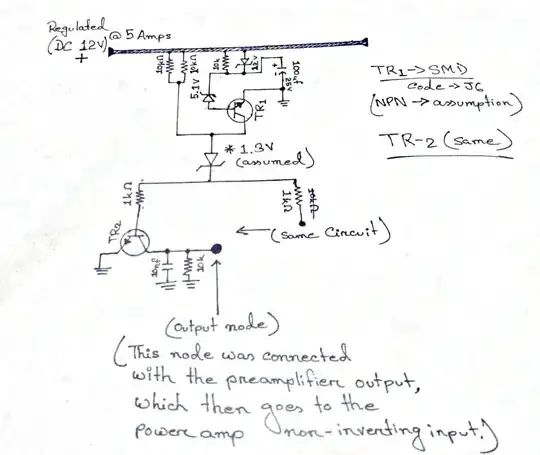 Regulated
(DC 12V) @ 5 Amps
+
10kΩ
10kΩ
10k
12V
+
100μf
25V
5.1V
TR1
TR1 → SMD
Code → J6
(NPN → assumption)
TR-2 (same)
* 1.3V
(assumed)
1kΩ
1kΩ
10kΩ
TR2
(same circuit)
10nf
10k
(output node)
(This node was connected
with the preamplifier output,
which then goes to the
power amp non-inverting input.)